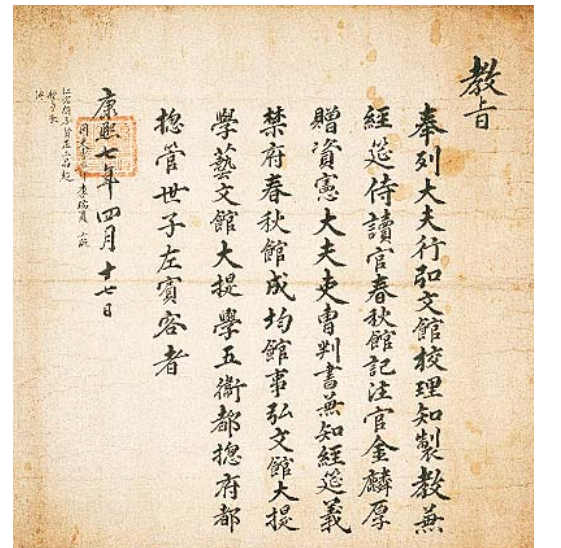 教旨
奉列大夫行弘文館校理知製教兼
經筵侍讀官春秋館記注官金麟厚
贈資憲大夫吏曹判書兼知經筵義
禁府春秋館成均館事弘文館大提
學藝文館大提學五衛都摠府都
摠管世子左賓客者
康熙七年四月十七日